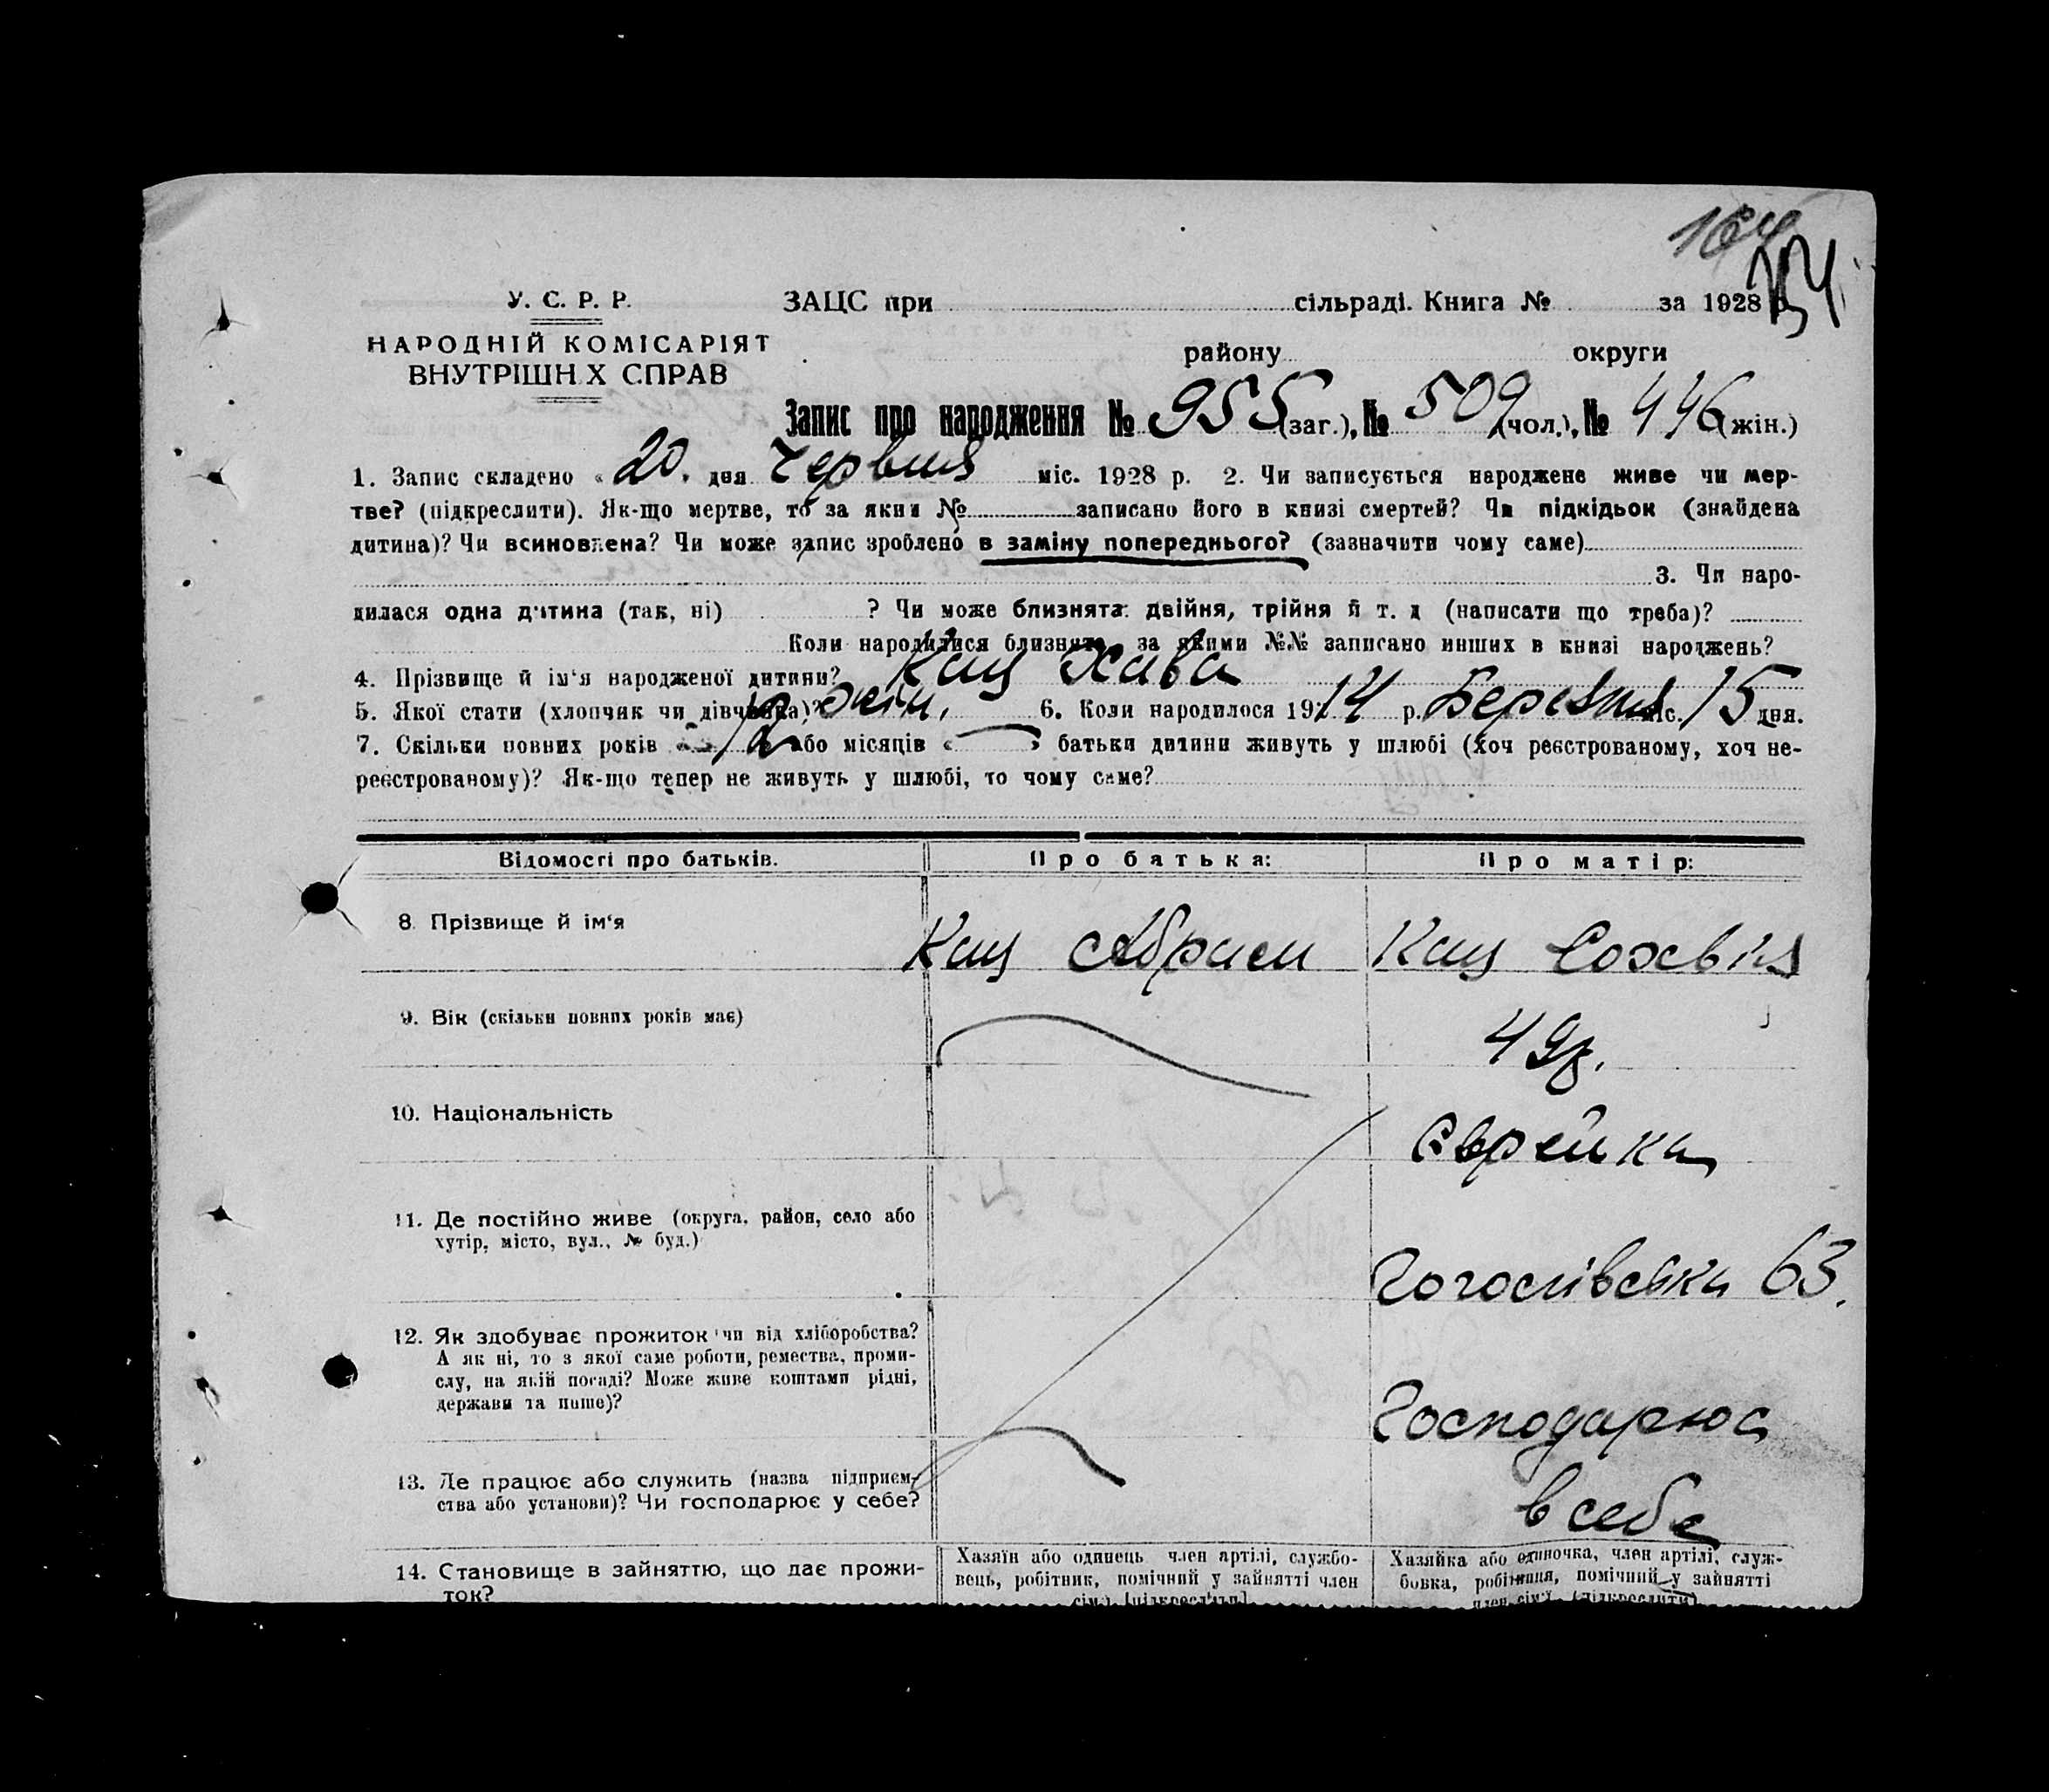 164
У. С. Р. Р.
ЗАЦС при сільраді. Книга № за 1928 р.
НАРОДНІЙ КОМІСАРІЯТ
ВНУТРІШНІХ СПРАВ
району округи
Запис про народження № 955 (заг.), № 509 (чол.), № 446 (жін.)
1. Запис складено « 20 . дня Червня міс. 1928 р. 2. Чи записується народжене живе чи мер-
тве? (підкреслити). Як-що мертве, то за яким № записано його в книзі смертей? Чи підкідьок (знайдена
дитина)? Чи всиновлена? Чи може запис зроблено в заміну попереднього? (зазначити чому саме)
3. Чи наро-
дилася одна дитина (так, ні) ? Чи може близнята: двійня, трійня й т. д (написати що треба)?
Коли народилися близнята, за якими №№ записано инших в книзі народжень?
4. Прізвище й ім‘я народженої дитини? Кац Хава
5. Якої стати (хлопчик чи дівчинка)? жін. 6. Коли народилося 1914 р. Березня міс. 15 дня.
7. Скільки повних років 12 або місяців « » батьки дитини живуть у шлюбі (хоч реєстрованому, хоч не-
реєстрованому)? Як-що тепер не живуть у шлюбі, то чому саме?
Відомості про батьків. Про батька: Про матір:
8. Прізвище й ім‘я Кац Абрам Кац Софвія
9. Вік (скільки повних років має) 49р.
10. Національність Єврейка
11. Де постійно живе (округа, район, село або
хутір, місто, вул., № буд.)
Гоголівська 63.
12. Як здобуває прожиток чи від хліборобства?
А як ні, то з якої саме роботи, ремества, проми-
слу, на якій посаді? Може живе коштами рідні,
держави та инше)?
Господарює
13. Де працює або служить (назва підприєм-
ства або установи)? Чи господарює у себе?
в себе
14. Становище в зайняттю, що дає прожи-
ток?
Хазяїн або одинець член артілі, службо-
вець, робітник, помічний у зайнятті член
сім‘ї, [підкреслити]
Хазяйка або одиночка, член артілі, служ-
бовка, робітниця, помічний у зайнятті
член сім‘ї, (підкреслити)